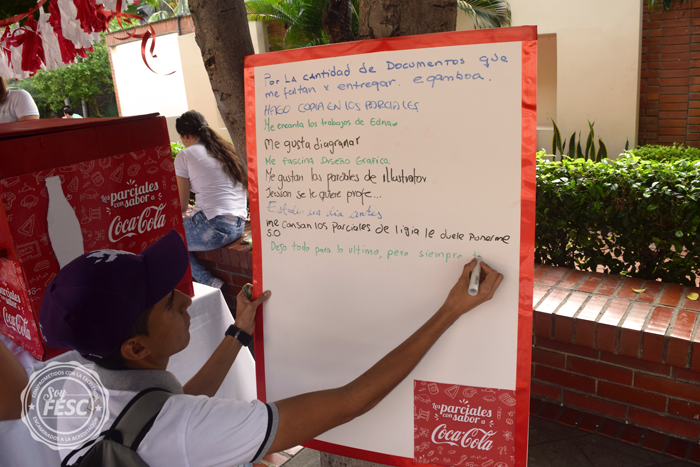 Por LA cantidad de Documentos que
me faltan x entregar. egamboa.
HAGO COPIA EN LOS PARCIALES
Me encanta los trabajos de Edna
Me gusta diagramar
Me fascina Diseño Grafico
Me gustan los parciales de illustrator
Jeisson se le quiere profe...
Estudio un día antes
me cansan los Parciales de ligia le duele Ponerme
5.0
Dejo todo para lo ultimo, pero siempre
Los parciales
con sabor a
Coca-Cola
Los parciales
con sabor a
Coca-Cola
Coca-Cola
COMPROMETIDOS CON LA EXCELENCIA
Soy
FESC
CAMINAMOS A LA ACREDITACIÓN